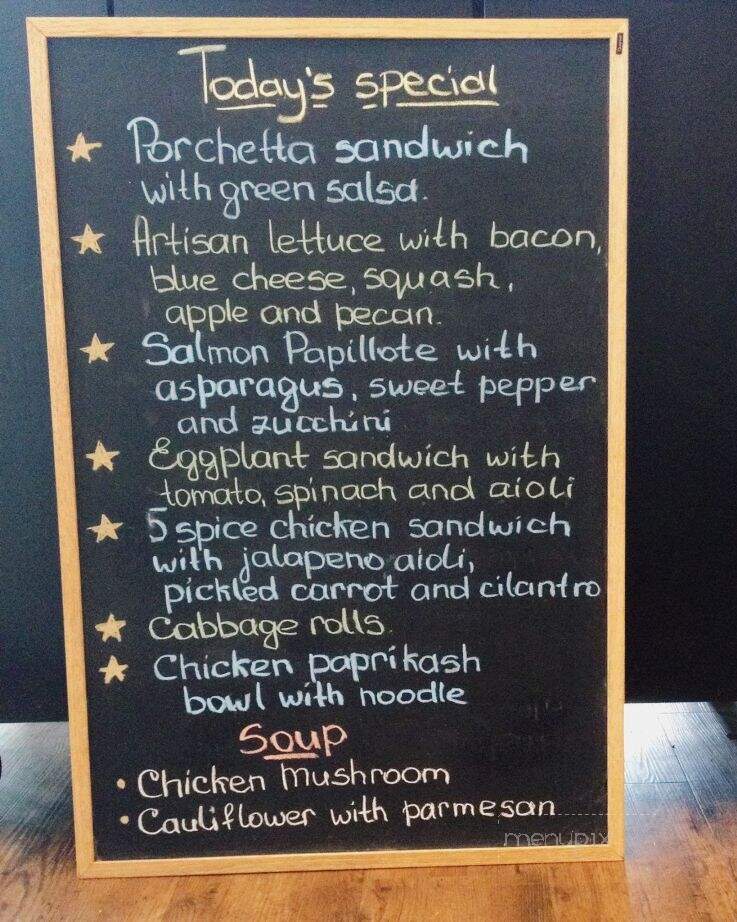 Today's special
Porchetta sandwich
with green salsa.
Artisan lettuce with bacon,
blue cheese, squash,
apple and pecan.
Salmon Papillote with
asparagus, sweet pepper
and zucchini
Eggplant sandwich with
tomato, spinach and aioli
5 spice chicken sandwich
with jalapeno aioli,
pickled carrot and cilantro
Cabbage rolls.
Chicken paprikash
bowl with noodle
Soup
• Chicken Mushroom
• Cauliflower with parmesan
menupix